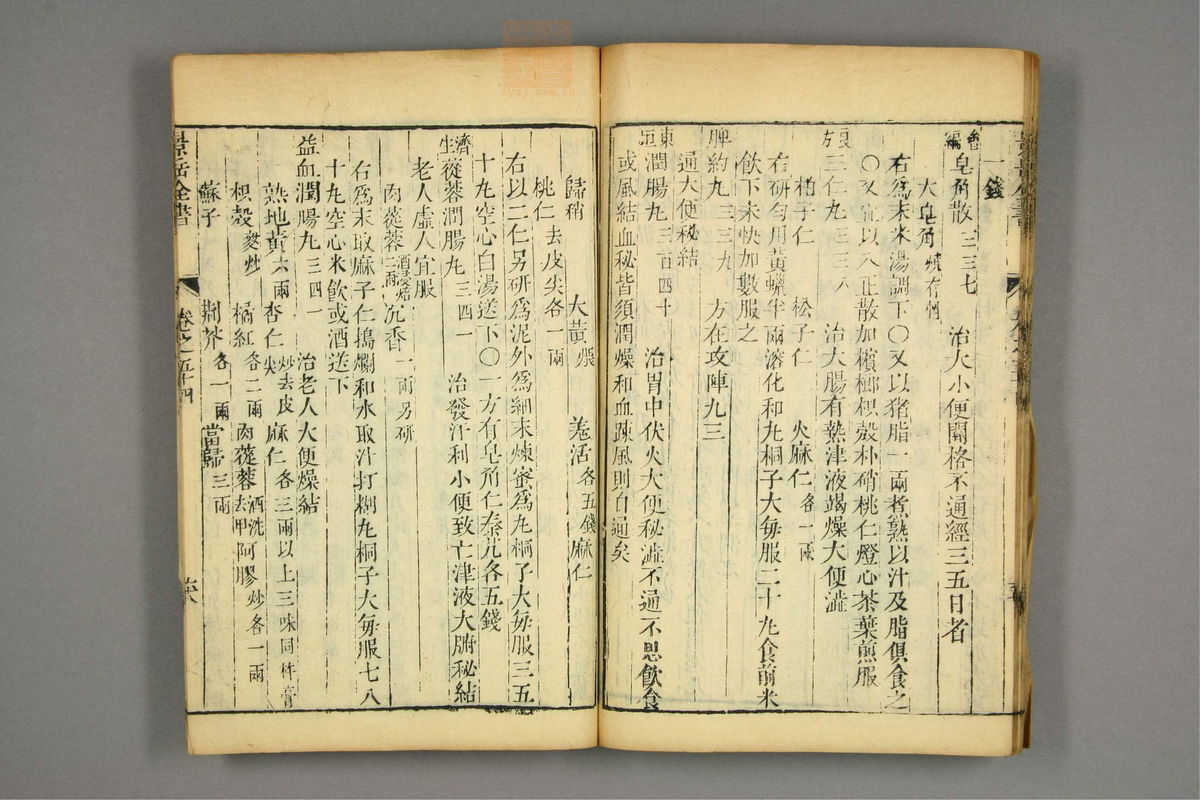 一錢
會編皂角散三三七　治大小便關格不通經三五日者
大皂角燒存性
右爲末米湯調下〇又以猪脂一兩煮熟以汁及脂俱食之
〇又宜以八正散加檳榔枳殼朴硝桃仁燈心茶葉煎服
良方三仁丸三三八　治大腸有熱津液竭燥大便澁
柏子仁　松子仁　火麻仁各一兩
右研勻用黃蠟半兩溶化和丸桐子大每服二十九食前米
飲下未快加數服之
脾約丸三三九　方在攻陣九三
通大便秘結
東垣潤腸丸三百四十　治胃中伏火大便秘澁不通不思飲食
或風結血秘皆須潤燥和血疎風則自通矣
歸稍　大黃煨　羗活各五錢　麻仁
桃仁去皮尖各一兩
右以二仁另研爲泥外爲細末煉蜜爲丸桐子大每服三五
十丸空心白湯送下〇一方有皂角仁秦艽各五錢
濟生蓯蓉潤腸丸三四一　治發汗利小便致亡津液大腑秘結
老人虛人宜服
肉蓯蓉酒浸焙二兩　沉香一兩另研
右爲末取麻子仁搗爛和水取汁打糊丸桐子大每服七八
十丸空心米飲或酒送下
益血潤腸丸三四一　治老人大便燥結
熟地黃六兩　杏仁炒去皮尖　麻仁各三兩以上三味同杵膏
枳殼麩炒　橘紅各二兩　肉蓯蓉酒洗去甲　阿膠炒各一兩
蘇子　荆芥各一兩　當歸三兩
景岳全書　卷之五十四